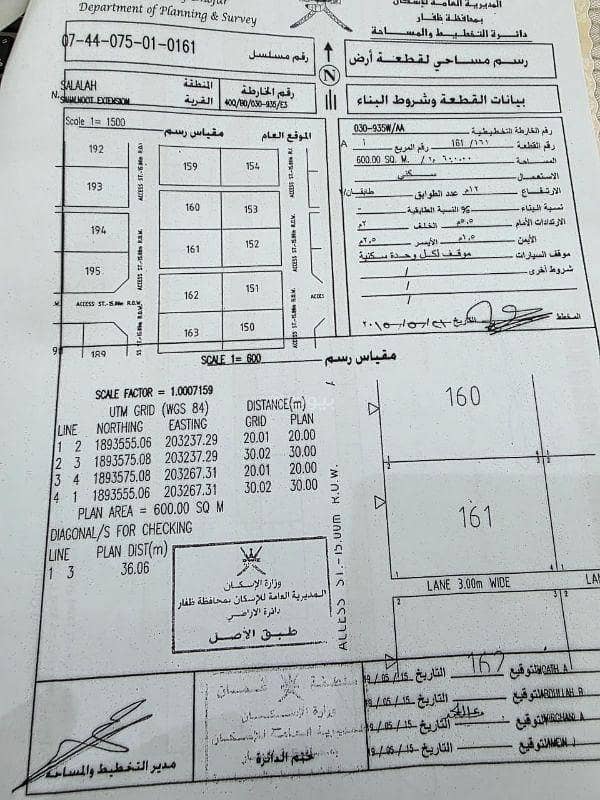 المديرية العامة للإسكان
بمحافظة ظفار
دائرة التخطيط والمساحة
Department of Planning & Survey
رسم مساحي لقطعة أرض
رقم مسلسل 07-44-075-01-0161
N
بيانات القطعة وشروط البناء
المنطقة SALALAH
القرية SAHALNOOT EXTENSION
رقم الخارطة
400/BD/030-935/E3
رقم الخارطة التخطيطية 030-935W/AA
رقم القطعة ١٦١/ 161 رقم المربع ١ A
المساحة ٦٠٠،٠٠ م٢ / 600.00 SQ. M.
الاستعمال سكني
الارتفاع ١٢م عدد الطوابق طابقان/٢
نسبة البناء % النسبة الطابقية -
الارتدادات الأمام ٥،٥م الخلف ٢م
الأيمن ١،٥م الأيسر ٢،٥م
موقف السيارات موقف لكل وحدة سكنية
شروط أخرى
المخطط
التاريخ
Scale 1= 1500
مقياس رسم
الموقع العام
192
193
194
195
189
159
154
160
153
161
152
162
151
163
150
ACCESS ST.-15.00m R.O.W.
ACCESS ST.-15.00m R.O.W.
ACCESS ST.-15.00m R.O.W.
ACCES
SCALE 1= 600
مقياس رسم
SCALE FACTOR = 1.0007159
UTM GRID (WGS 84) DISTANCE(m)
LINE NORTHING EASTING GRID PLAN
1 2 1893555.06 203237.29 20.01 20.00
2 3 1893575.08 203237.29 30.02 30.00
3 4 1893575.08 203267.31 20.01 20.00
4 1 1893555.06 203267.31 30.02 30.00
PLAN AREA = 600.00 SQ M
DIAGONAL/S FOR CHECKING
LINE PLAN DIST(m)
1 3 36.06
160
161
LANE 3.00m WIDE
LAN
ACCESS ST.-15.00m R.O.W.
162
وزارة الإسكان
المديرية العامة للإسكان بمحافظة ظفار
دائرة الأراضي
طبق الأصل
سلطنة عمان
وزارة الإسكان
ختم الدائرة
مدير التخطيط والمساحة
19/05/15 التاريخ التوقيع
19/05/15 التاريخ التوقيع ABDULLAH B
19/05/15 التاريخ التوقيع
19/05/15 التاريخ التوقيع